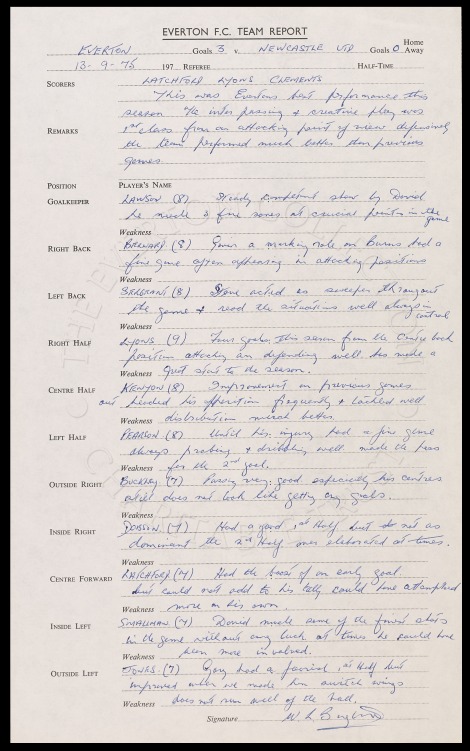 EVERTON F.C. TEAM REPORT
EVERTON Goals 3 v. NEWCASTLE UTD Goals 0 Home Away
13-9-75 197 REFEREE HALF-TIME
SCORERS LATCHFORD LYONS CLEMENTS
This was Evertons best performance this
season. The inter passing & creative play was
REMARKS 1st class from an attacking point of view defensively
the team performed much better than previous
games.
POSITION PLAYER'S NAME
GOALKEEPER LAWSON (8) Steady competent show by David
he made 3 fine saves at crucial points in the game
Weakness
RIGHT BACK BERNARD (8) Given a marking role on Burns had a
fine game often appearing in attacking positions
Weakness
LEFT BACK SEARGEANT (8) Steve acted as sweeper throughout
the game & read the situations well always in control
Weakness
RIGHT HALF LYONS (9) Four goals this season from the Centre back
position attacking an defending well has made a
Weakness Great start to the season.
CENTRE HALF KENYON (8) Improvement on previous games
out headed his opposition frequently & tackled well
Weakness distribution much better.
LEFT HALF PEARSON (8) Until his injury had a fine game
always probing & dribbling well made the pass
Weakness for the 2nd goal.
OUTSIDE RIGHT BUCKLEY (7) Passing very good especially his centres
still does not look like getting any goals.
Weakness
INSIDE RIGHT DOBSON (7) Had a good 1st Half but do not as
dominant the 2nd Half over elaborated at times.
Weakness
CENTRE FORWARD LATCHFORD (7) Had the boost of an early goal
but could not add to his tally could have attempted
Weakness more on his own.
INSIDE LEFT SMALLMAN (7) David made some of the finest shots
in the game without any luck at times he could have
Weakness been more involved.
OUTSIDE LEFT JONES (7) Gary had a 1st Half but
improved when we made him switch wings
Weakness does not run well off the ball.
Signature